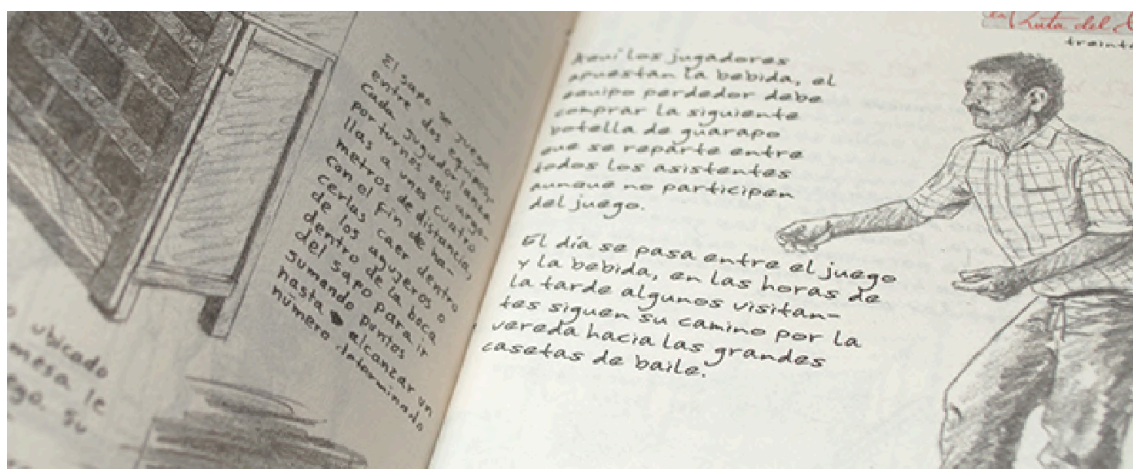 o ubicado
mesa le
ego. Su
El sapo se juega
entre dos equipos.
Cada jugador lanza
por turnos seis argo-
llas a unos cuatro
metros de distancia,
con el fin de ha-
cerlas caer dentro
de los agujeros o
dentro de la boca
del sapo para ir
sumando puntos
hasta alcanzar un
número
en Ruta del
treinta
Aquí los jugadores
apuestan la bebida, el
equipo perdedor debe
comprar la siguiente
botella de guarapo
que se reparte entre
todos los asistentes
aunque no participen
del juego.
El día se pasa entre el juego
y la bebida, en las horas de
la tarde algunos visitan-
tes siguen su camino por la
vereda hacia las grandes
casetas de baile.